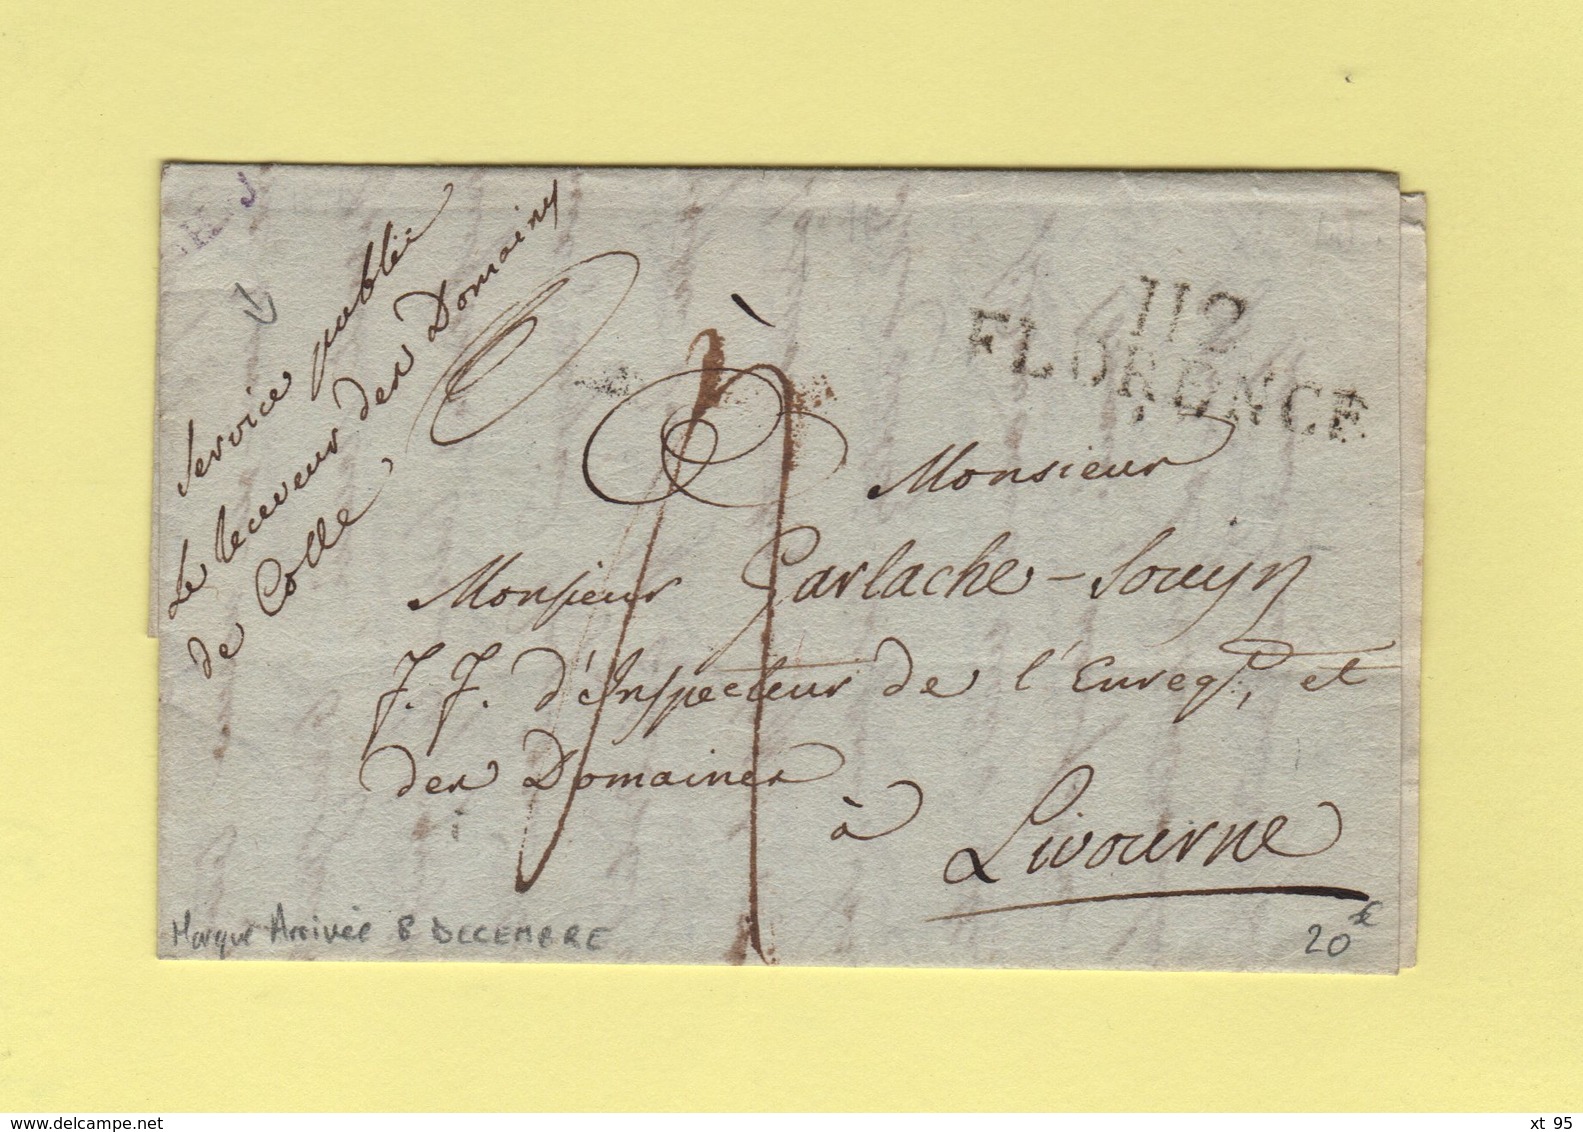 Service publié
Le receveur des Domaines
de Colle
112
FLORENCE
à
Monsieur
Monsieur Garlache-Souijn
F.F. d'Inspecteur de l'Enregt, et
des Domaines
à
Livourne
Marque Arrivée 8 DECEMBRE
20€
delcampe.net
xt 95